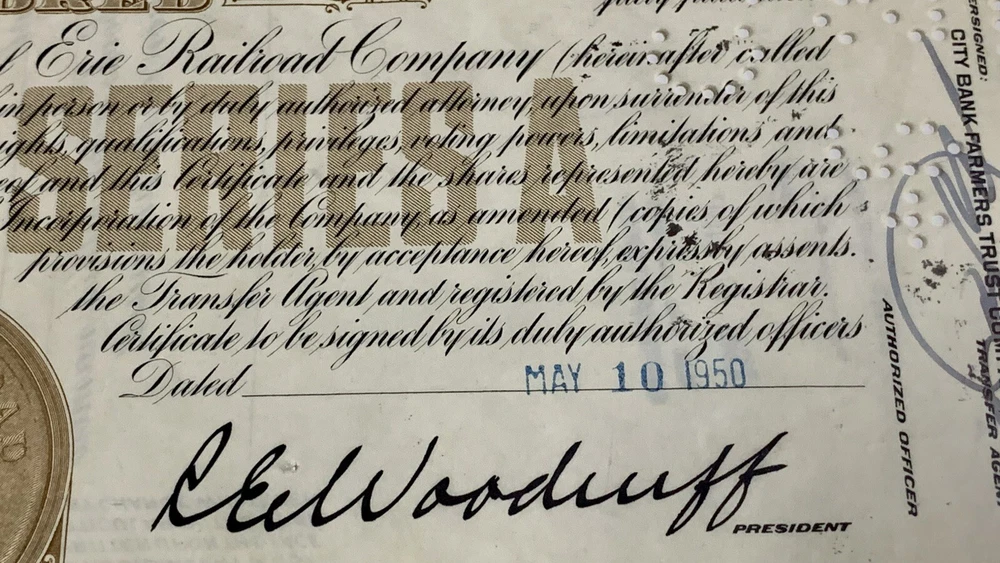 Erie Railroad Company (hereinafter called
in person or by duly authorized attorney, upon surrender of this
qualifications, privileges, voting powers, limitations and
and this Certificate and the shares represented hereby are
Incorporation of the Company, as amended (copies of which
provisions the holder, by acceptance hereof, expressly assents.
the Transfer Agent and registered by the Registrar.
Certificate to be signed by its duly authorized officers
Dated MAY 10 1950
R E Woodruff
PRESIDENT
SERIES A
CITY BANK FARMERS TRUST
TRANSFER
AUTHORIZED OFFICER